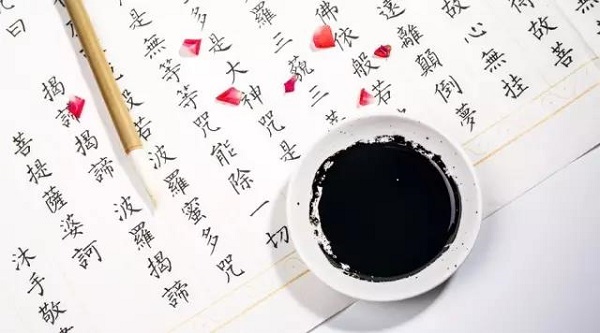 得故菩
故心無挂
遠離顛倒夢
佛依般若
羅三藐三
多是大神咒是
是無等等咒能除一切
般若波羅蜜多咒
曰揭諦揭諦波羅揭諦
菩提薩婆訶
沐手敬